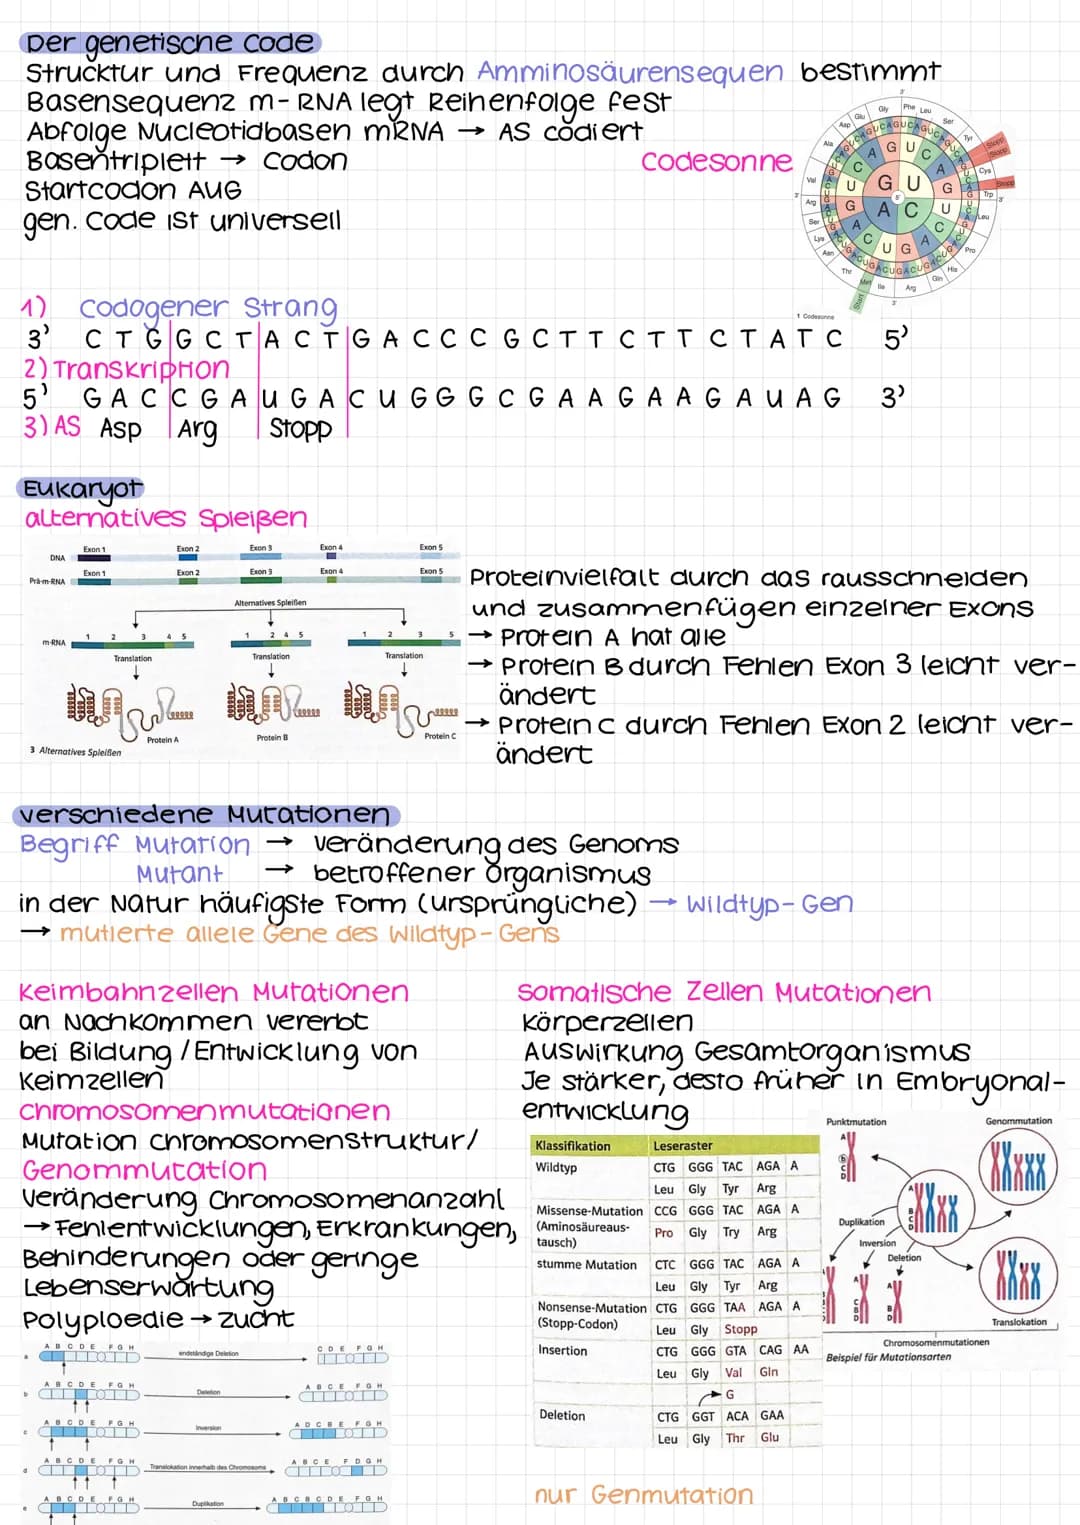 Der genetische Code
Strucktur und Frequenz durch Amminosäurensequen bestimmt
Basensequenz m-RNA legt Reihenfolge fest
Abfolge Nucleotidbasen mRNA → AS codiert
Basentriplett → Codon
Codesonne
Startcodon AUG
gen. Code ist universell
1 Codesonne
1) Codogener Strang
3' C T G G C T A C T G A C C C G C T T C T T C T A T C 5'
2) Transkription
5' G A C C G A U G A C U G G G C G A A G A A G A U A G 3'
3) AS Asp Arg Stopp
Eukaryot
alternatives Spleißen
Exon 1 Exon 2 Exon 3 Exon 4 Exon 5
DNA
Exon 1 Exon 2 Exon 3 Exon 4 Exon 5
Prä-m-RNA
Alternatives Spleißen
m-RNA 1 2 3 4 5 1 2 4 5 1 2 3 5
Translation Translation Translation
Protein A Protein B Protein C
3 Alternatives Spleißen
Proteinvielfalt durch das rausschneiden
und zusammenfügen einzelner Exons
→ Protein A hat alle
→ Protein B durch Fehlen Exon 3 leicht ver-
ändert
→ Protein C durch Fehlen Exon 2 leicht ver-
ändert
verschiedene Mutationen
Begriff Mutation → Veränderung des Genoms
Mutant → betroffener Organismus
in der Natur häufigste Form (ursprüngliche) → Wildtyp-Gen
→ mutierte allele Gene des Wildtyp-Gens
Keimbahnzellen Mutationen
an Nachkommen vererbt
bei Bildung / Entwicklung von
Keimzellen
Chromosomenmutationen
Mutation Chromosomenstruktur/
Genommutation
Veränderung Chromosomenanzahl
→ Fehlentwicklungen, Erkrankungen,
Behinderungen oder geringe
Lebenserwartung
Polyploedie → Zucht
a A B C D E F G H endständige Deletion C D E F G H
b A B C D E F G H Deletion A B C E F G H
c A B C D E F G H Inversion A D C B E F G H
d A B C D E F G H Translokation innerhalb des Chromosoms A B C E F D G H
e A B C D E F G H Duplikation A B C B C D E F G H
Somatische Zellen Mutationen
Körperzellen
Auswirkung Gesamtorganismus
Je stärker, desto früher in Embryonal-
entwicklung
Klassifikation Leseraster
Wildtyp CTG GGG TAC AGA A
Leu Gly Tyr Arg
Missense-Mutation CCG GGG TAC AGA A
(Aminosäureaus-
tausch) Pro Gly Try Arg
stumme Mutation CTC GGG TAC AGA A
Leu Gly Tyr Arg
Nonsense-Mutation CTG GGG TAA AGA A
(Stopp-Codon) Leu Gly Stopp
Insertion CTG GGG GTA CAG AA
Leu Gly Val Gln
G
Deletion CTG GGT ACA GAA
Leu Gly Thr Glu
Punktmutation
Genommutation
Duplikation
Inversion
Deletion
Translokation
Chromosomenmutationen
Beispiel für Mutationsarten
nur Genmutation